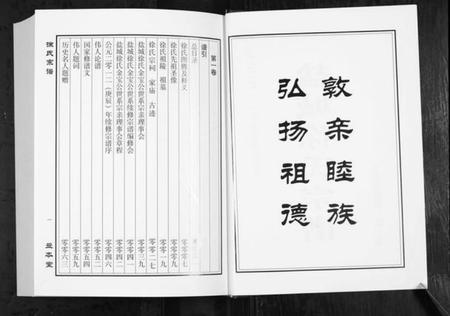 敦亲睦族
弘扬祖德
第一卷
谱引
总目录
徐氏图腾及释义
徐氏先祖圣像
徐氏祖陵 祖墓
徐氏宗祠 家庙 古迹
盐城徐氏金宝公世系宗亲理事会
盐城徐氏金宝公世系续修宗谱编修会
盐城徐氏金宝公世系宗亲理事会章程
公元二零一二(庚辰)年续修宗谱序
伟人论谱
国家修谱文
伟人题词
历史名人题赠
零零零七
零零零九
零零一九
零零二七
零零三九
零零四一
零零四二
零零四六
零零五二
零零五四
零零五九
零零六三
徐氏宗谱
一